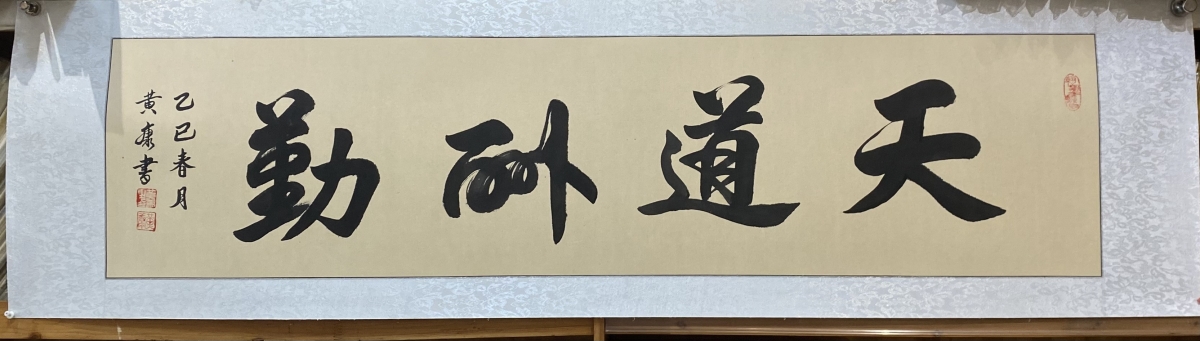 天道酬勤
乙巳春月
黄康书